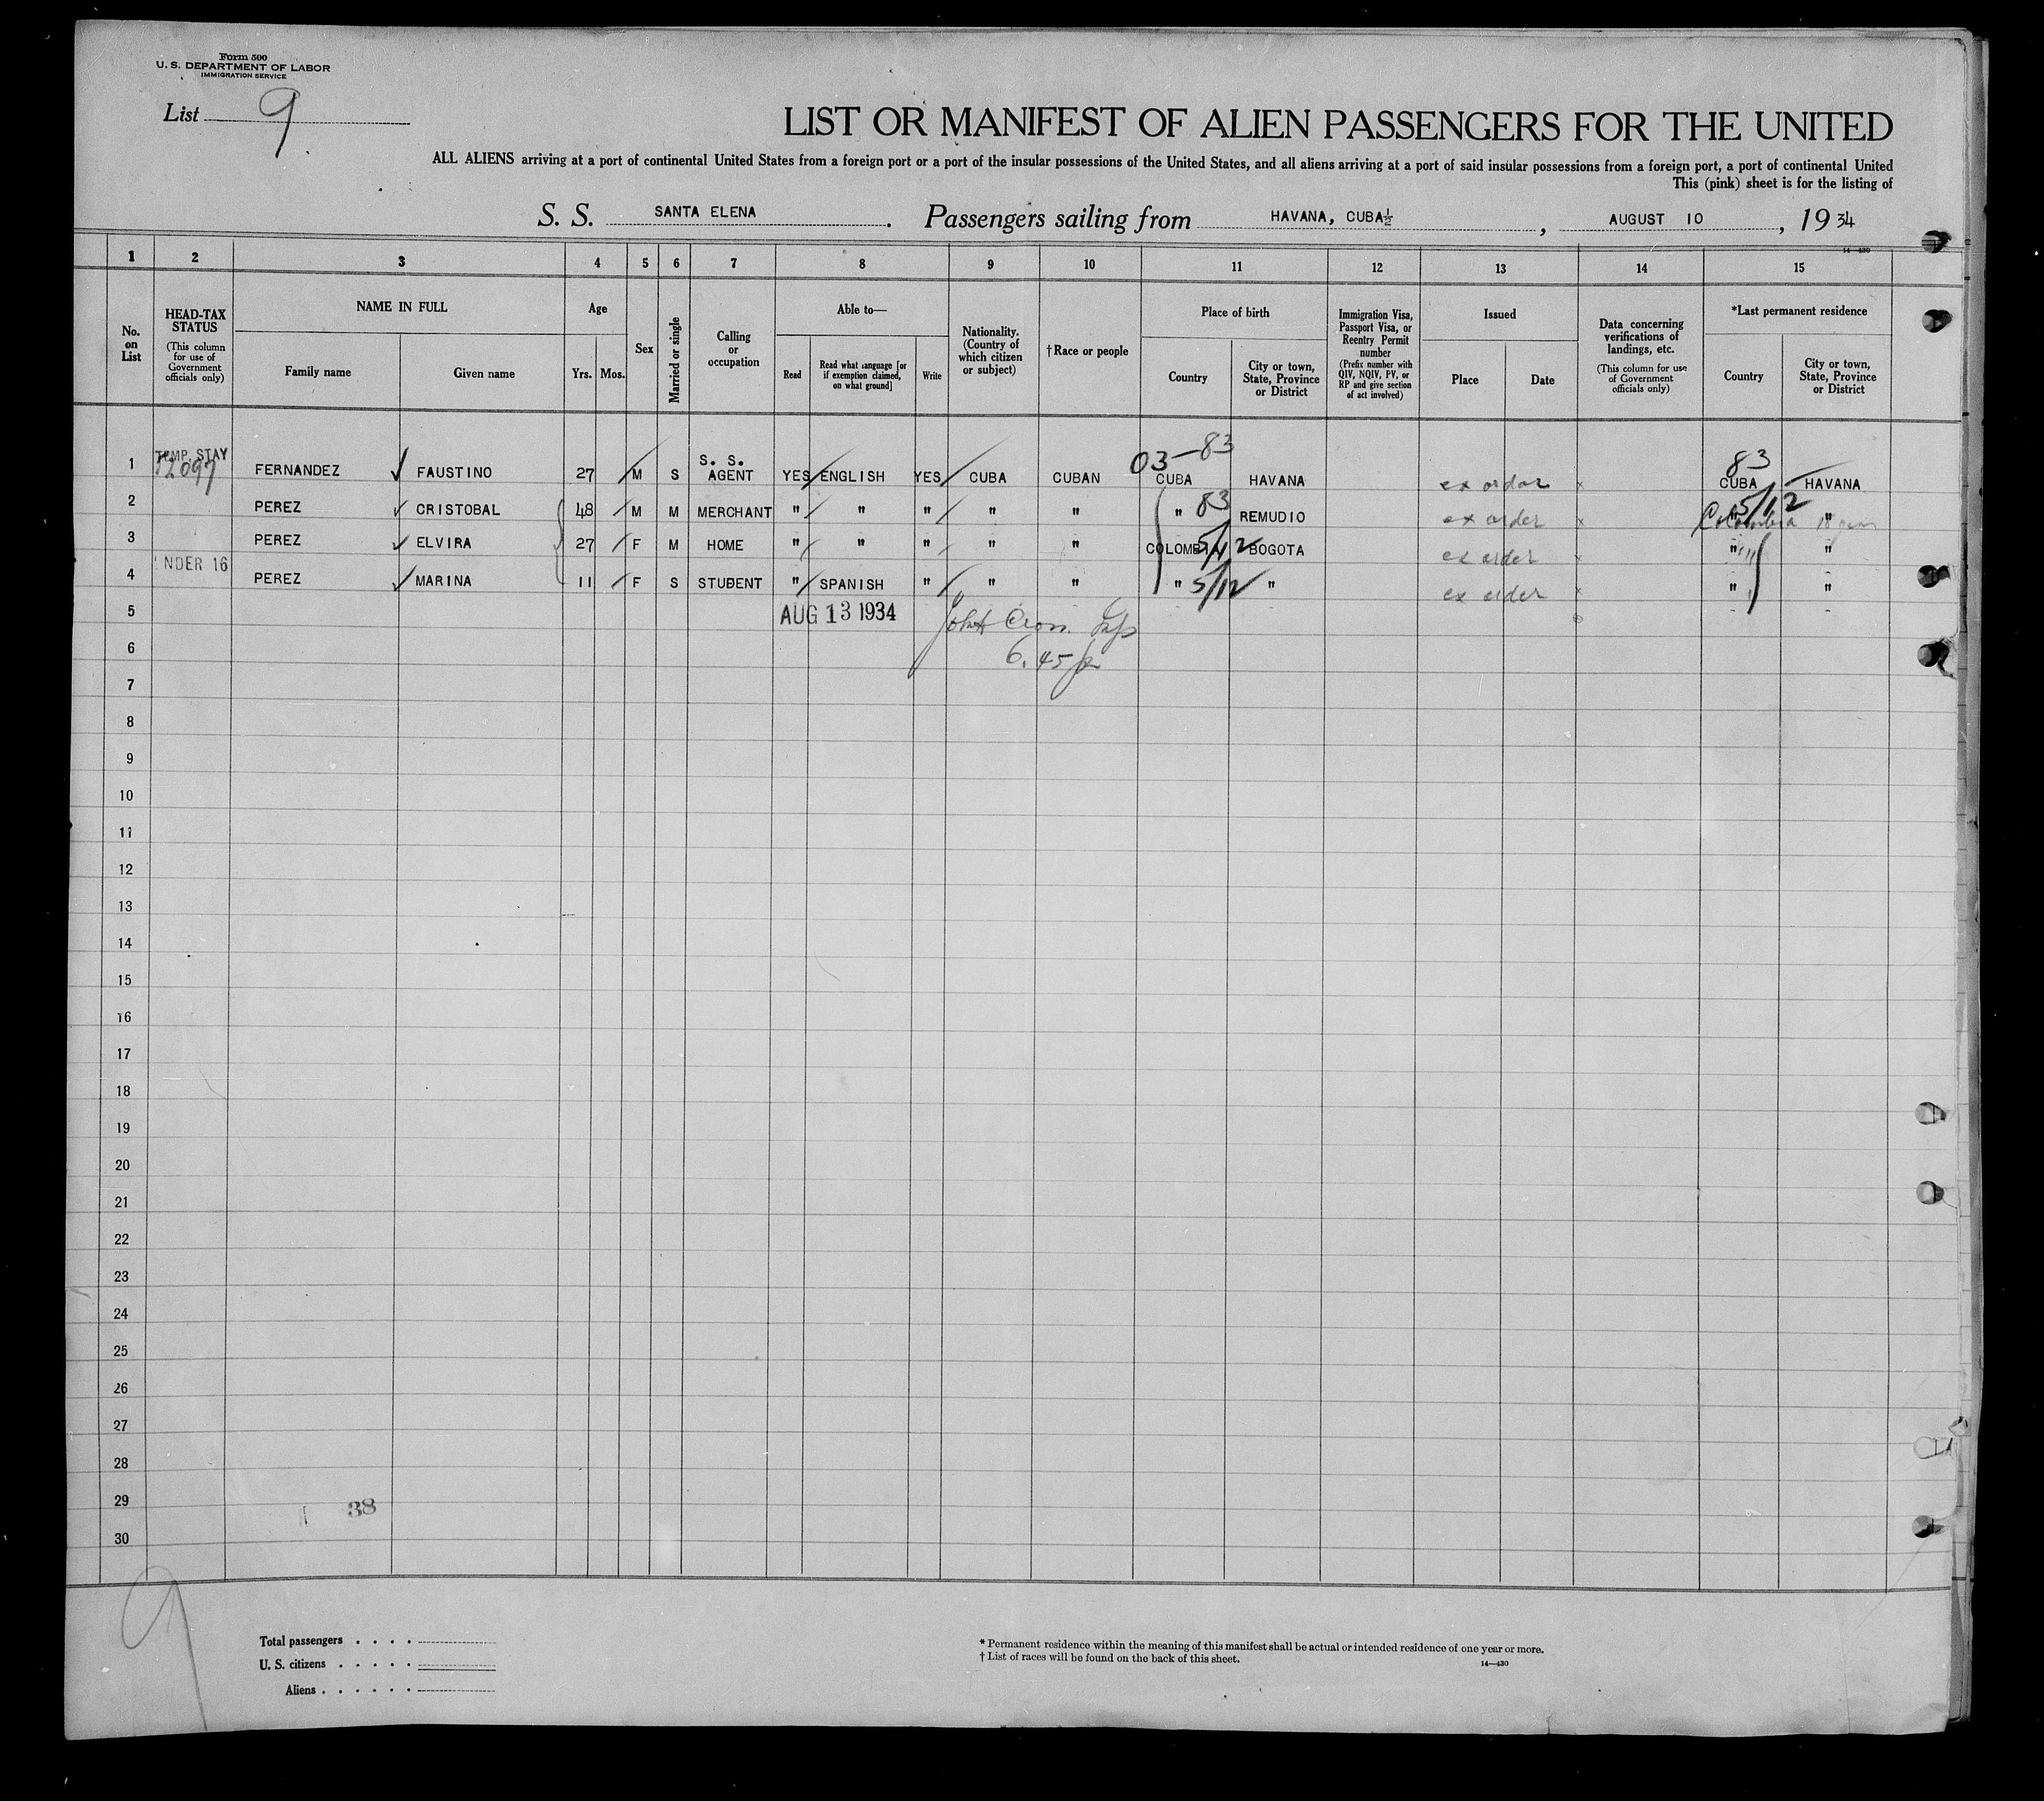 Form 500
U. S. DEPARTMENT OF LABOR
IMMIGRATION SERVICE
List 9
LIST OR MANIFEST OF ALIEN PASSENGERS FOR THE UNITED
ALL ALIENS arriving at a port of continental United States from a foreign port or a port of the insular possessions of the United States, and all aliens arriving at a port of said insular possessions from a foreign port, a port of continental United
This (pink) sheet is for the listing of
S. S. SANTA ELENA. Passengers sailing from HAVANA, CUBA½, AUGUST 10, 1934
14—430
1 2 3 4 5 6 7 8 9 10 11 12 13 14 15
No. on List
HEAD-TAX STATUS (This column for use of Government officials only)
NAME IN FULL
Family name Given name
Age
Yrs. Mos.
Sex
Married or single
Calling or occupation
Able to—
Read Read what language [or if exemption claimed, on what ground] Write
Nationality. (Country of which citizen or subject)
†Race or people
Place of birth
Country City or town, State, Province or District
Immigration Visa, Passport Visa, or Reentry Permit number (Prefix number with QIV, NQIV, PV, or RP and give section of act involved)
Issued
Place Date
Data concerning verifications of landings, etc. (This column for use of Government officials only)
*Last permanent residence
Country City or town, State, Province or District
03-83 83
TEMP. STAY
1 FERNANDEZ ✓ FAUSTINO 27 M S S. S. AGENT YES ENGLISH YES CUBA CUBAN CUBA HAVANA ex order x CUBA HAVANA
2 PEREZ ✓ CRISTOBAL 48 M M MERCHANT " " " " " " 83 REMUDIO ex order x " 5/12 Colombia "
3 PEREZ ✓ ELVIRA 27 F M HOME " " " " " COLOMBIA 5/12 BOGOTA ex order x " "
NDER 16
4 PEREZ ✓ MARINA 11 F S STUDENT " SPANISH " " " " 5/12 " ex order x " "
5 AUG 13 1934
6 6.45 p
7
8
9
10
11
12
13
14
15
16
17
18
19
20
21
22
23
24
25
26
27
28
29 38
30
9
Total passengers . . . .
U. S. citizens . . . . .
Aliens . . . . . .
* Permanent residence within the meaning of this manifest shall be actual or intended residence of one year or more.
† List of races will be found on the back of this sheet.
14—430